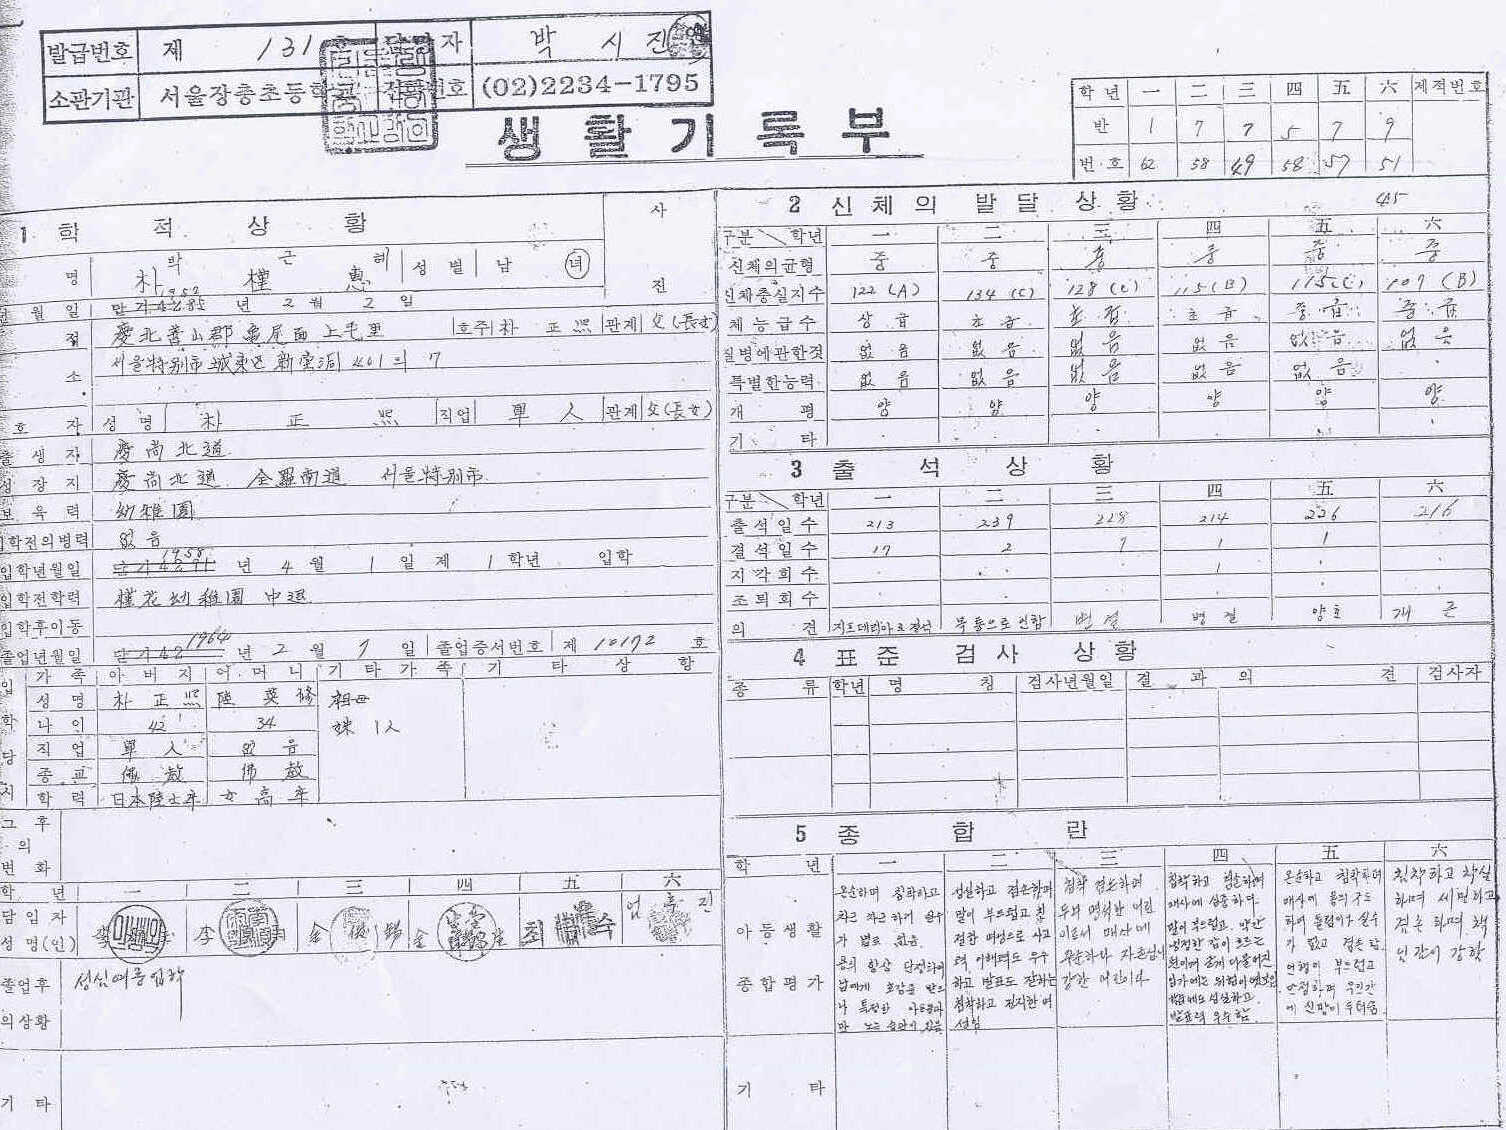 발급번호 제 131 호 담당자 박 시 진
소관기관 서울장충초등학교 전화번호 (02)2234-1795
생활기록부
학년 一 二 三 四 五 六 제적번호
반 1 7 7 5 7 9
번호 62 58 49 58 57 51
1 학 적 상 황
사
진
명 박 근 혜 성별 남 녀
朴 槿 惠
월 일 단기 4285 1952 년 2 월 2 일
적 慶北善山郡 龜尾面 上毛里 호주 朴 正 熙 관계 父(長女)
소 서울特別市 城東区 新堂洞 401의 7
호 자 성 명 朴 正 熙 직업 軍 人 관계 父(長女)
출 생 지 慶尚北道
성 장 지 慶尚北道 全羅南道 서울特別市
보 육 력 幼稚園
입학전의병력 없음
입학년월일 단기 4291 1958 년 4 월 1 일 제 1 학년 입학
입학전학력 槿花幼稚園 中退
입학후이동
졸업년월일 단기 42 1964 년 2 월 7 일 졸업증서번호 제 10172 호
입 학 당 시
가 족 아 버 지 어 머 니 기 타 가 족 기 타 상 항
성 명 朴 正 熙 陸 英 修 祖母
나 이 42 34 妹 1人
직 업 軍 人 없 음
종 교 佛 教 佛 教
학 력 日本陸士卒 女 高 卒
그 후
의
변 화
학 년 一 二 三 四 五 六
담 임 자
성 명(인) 李 李 金 金 최 숙 엄
졸업후 성심여중 입학
의상황
기 타
2 신 체 의 발 달 상 황 45
구분 학년 一 二 三 四 五 六
신체의균형 중 중 중 중 중 중
신체충실지수 122 (A) 134 (C) 128 (C) 115 (B) 115 (C) 107 (B)
체 능 급 수 상 급 초 급 초 급 초 급 중 급 중 급
질병에관한것 없 음 없 음 없 음 없 음 없 음 없 음
특별한능력 없 음 없 음 없 음 없 음 없 음
개 평 양 양 양 양 양 양
기 타
3 출 석 상 황
구분 학년 一 二 三 四 五 六
출 석 일 수 213 239 228 214 226 216
결 석 일 수 17 2 7 1 1
지 각 회 수 1
조 퇴 회 수
의 견 지프데리아로 결석 복통으로 인함 병결 병 결 양호 개 근
4 표 준 검 사 상 황
종 류 학년 명 칭 검사년월일 결 과 의 견 검사자
5 종 합 란
학 년 一 二 三 四 五 六
아 동 생 활
종 합 평 가
온순하며 침착하고
차근차근 하여 실수
가 별로 없음.
용의 항상 단정하여
남에게 호감을 받으
나 특정한 아동과
만 노는 습관이 있음
성실하고 겸손하며
말이 부드럽고 친
절함 며성으로 사고
력 이해력도 우수
하고 발표도 잘하는
침착하고 진지한 여
성임
침착 겸손하며
두뇌 명석한 어린
이로서 매사에
우수하나 자존심이
강한 어린이다.
침착하고 겸손하며
매사에 성실하며
말이 부드럽고 약간
냉정한 감이 흐르는
발표력 우수함.
온순하고 침착하며
매사에 용의주도
하며 틀림이가 실수
가 없고 겸손함.
언행이 부드럽고
안정하며 우인간
에 신망이 두터움
침착하고 착실
하며 세밀하고
겸손하며 책
임감이 강함
기 타